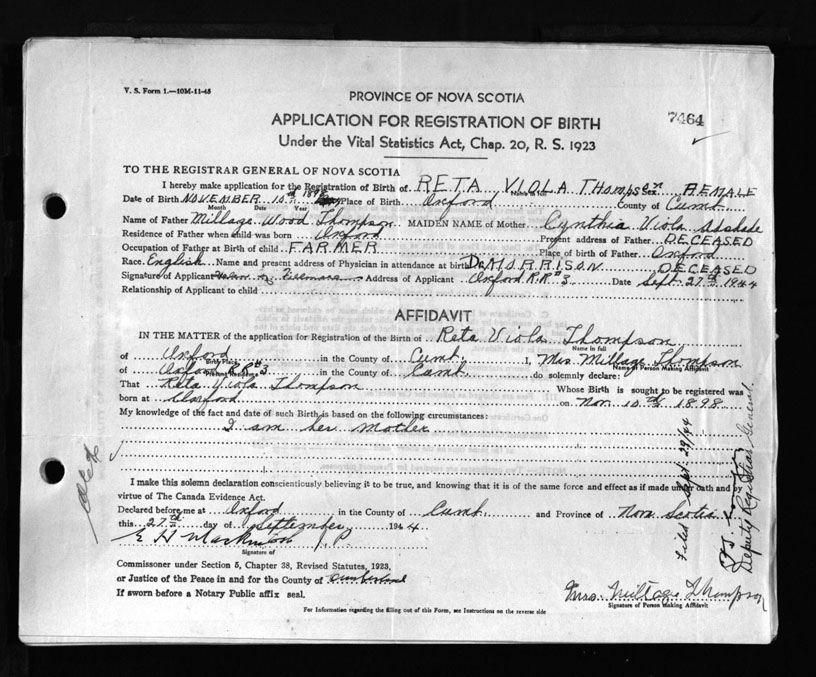 V. S. Form 1.—10M-11-45
PROVINCE OF NOVA SCOTIA
7464
APPLICATION FOR REGISTRATION OF BIRTH
Under the Vital Statistics Act, Chap. 20, R. S. 1923
TO THE REGISTRAR GENERAL OF NOVA SCOTIA
I hereby make application for the Registration of Birth of RETA VIOLA THOMPSON Sex FEMALE
Name in full
Date of Birth NOVEMBER 10th 1898 Place of Birth Oxford County of Cumb.
Month Date Year
Name of Father Millage Wood Thompson MAIDEN NAME of Mother Cynthia Viola Adshade
Residence of Father when child was born Oxford Present address of Father DECEASED
Occupation of Father at Birth of child FARMER Place of birth of Father Oxford
Race English Name and present address of Physician in attendance at birth Dr MORRISON DECEASED
Signature of Applicant Address of Applicant Oxford R.R#3 Date Sept 27th 1944
Relationship of Applicant to child
AFFIDAVIT
IN THE MATTER of the application for Registration of the Birth of Reta Viola Thompson
Name in full
of Oxford in the County of Cumb. I, Mrs. Millage Thompson
Birth Place Name of Person Making Affidavit
of Oxford RR#3 in the County of Cumb. do solemnly declare:
Present Residence
That Reta Viola Thompson Whose Birth is sought to be registered was
born at Oxford on Nov. 10th 1898
My knowledge of the fact and date of such Birth is based on the following circumstances:
I am her Mother
I make this solemn declaration conscientiously believing it to be true, and knowing that it is of the same force and effect as if made under oath and by
virtue of The Canada Evidence Act.
Declared before me at Oxford in the County of Cumb. and Province of Nova Scotia
this 27th day of September 1944
E H J.P.
Signature of
Commissioner under Section 5, Chapter 38, Revised Statutes, 1923,
or Justice of the Peace in and for the County of Cumberland
If sworn before a Notary Public affix seal.
Mrs. Millage Thompson
Signature of Person Making Affidavit
For Information regarding the filling out of this Form, see Instructions on the reverse side
Filed Sept. 29/44
Deputy Registrar General.